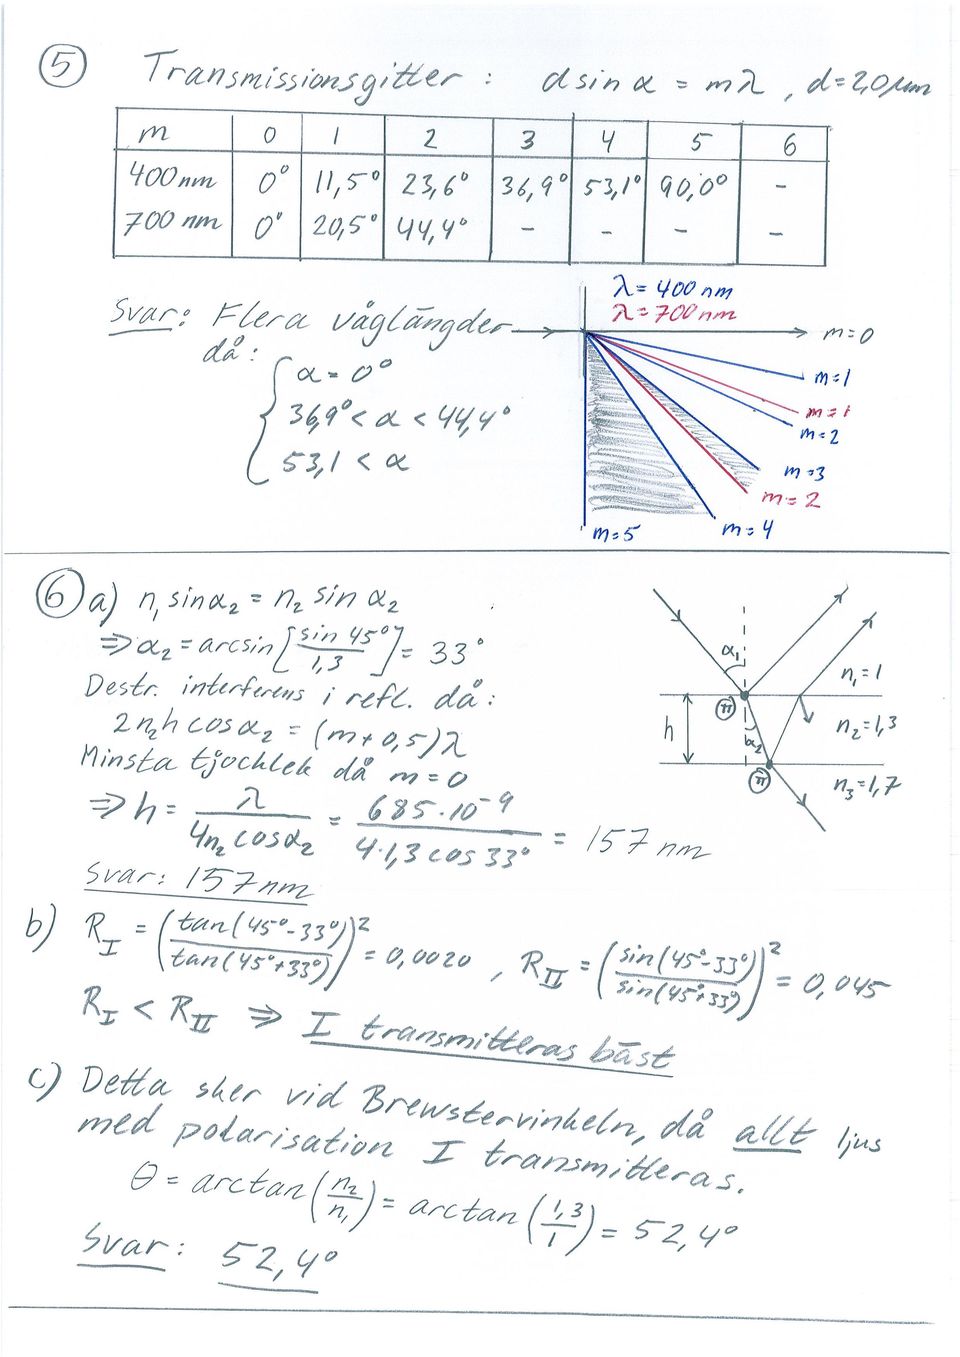 5 Transmissionsgitter : d sin α = mλ , d=2,0μm
m 0 1 2 3 4 5 6
400nm 0° 11,5° 23,6° 36,9° 53,1° 90,0° -
700 nm 0° 20,5° 44,4° - - - -
Svar: Flera våglängder
då:
α = 0°
36,9° < α < 44,4°
53,1 < α
λ = 400 nm
λ = 700 nm
m=0
m=1
m=1
m=2
m=3
m=2
m=5 m=4
6 a) n₁ sinα₂ = n₂ sin α₂
⇒ α₂ = arcsin[sin 45°/1,3] = 33°
Destr. interferens i refl. då:
2n₂h cosα₂ = (m+0,5)λ
Minsta tjocklek då m=0
⇒ h = λ/(4n₂ cosα₂) = 685·10⁻⁹/(4·1,3 cos 33°) = 157 nm
Svar: 157 nm
α₁
n₁=1
π
h α₂ n₂=1,3
π n₃=1,7
b) R_I = (tan(45°-33°)/tan(45°+33°))² = 0,0020 , R_II = (sin(45°-33°)/sin(45°+33°))² = 0,045
R_I < R_II ⇒ I transmitteras bäst
c) Detta sker vid Brewstervinkeln, då allt ljus
med polarisation I transmitteras.
θ = arctan(n₂/n₁) = arctan(1,3/1) = 52,4°
Svar: 52,4°